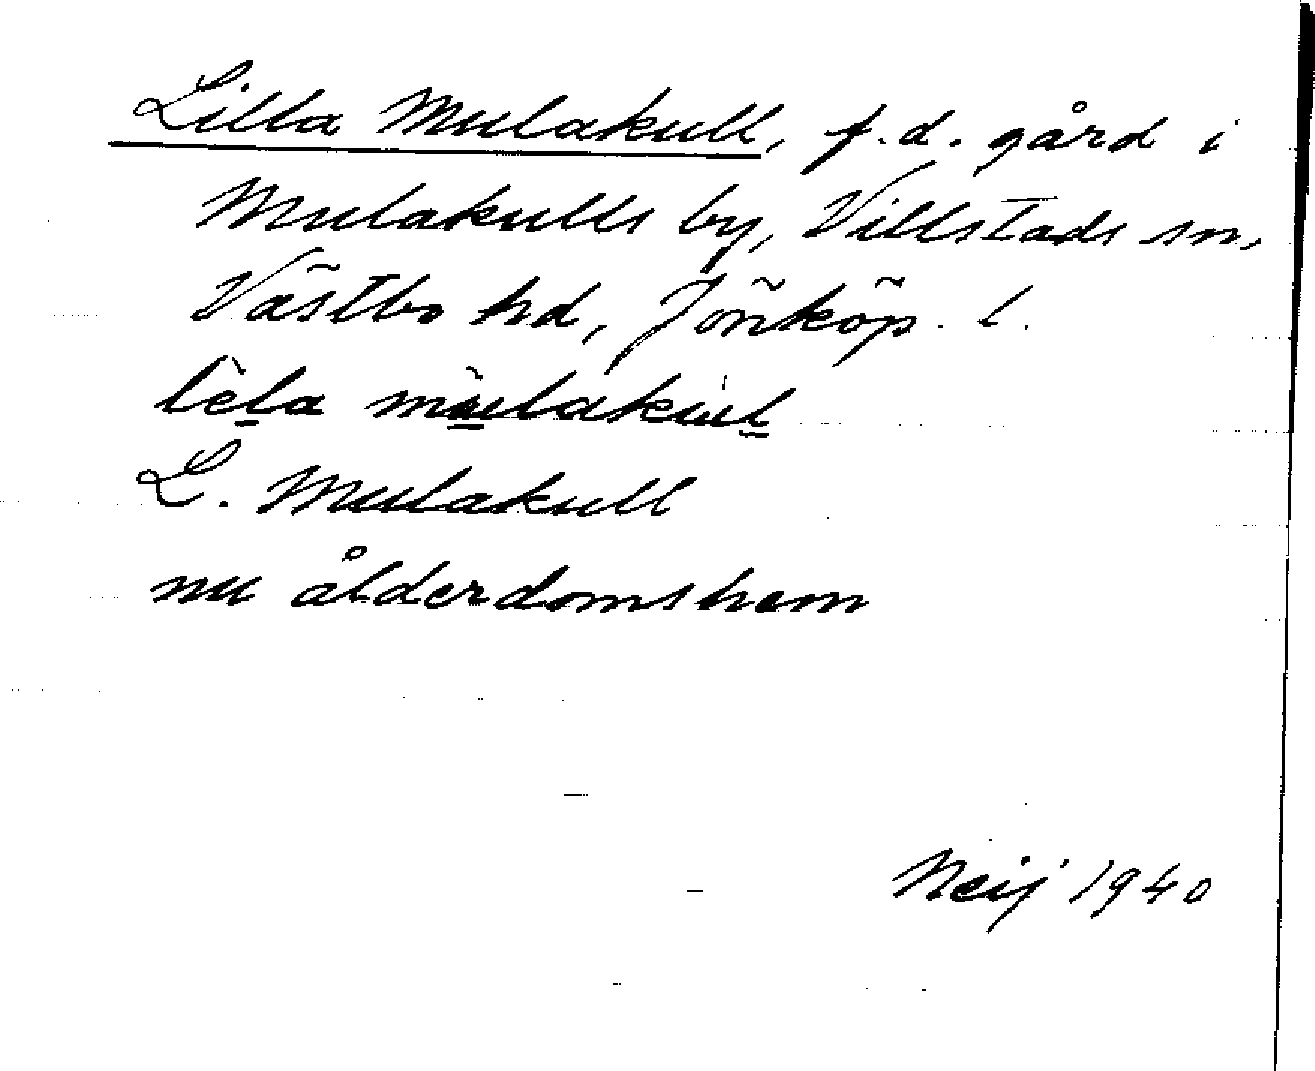 Lilla Mulakull, f.d. gård i
Mulakulls by, Villstads sn,
Västbo hd, Jönköp. l.
lèla mùlakul
L. Mulakull
nu ålderdomshem
Neij 1940